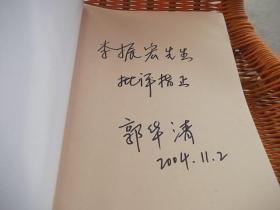 李振宏先生
批评指正
郭华清
2004.11.2